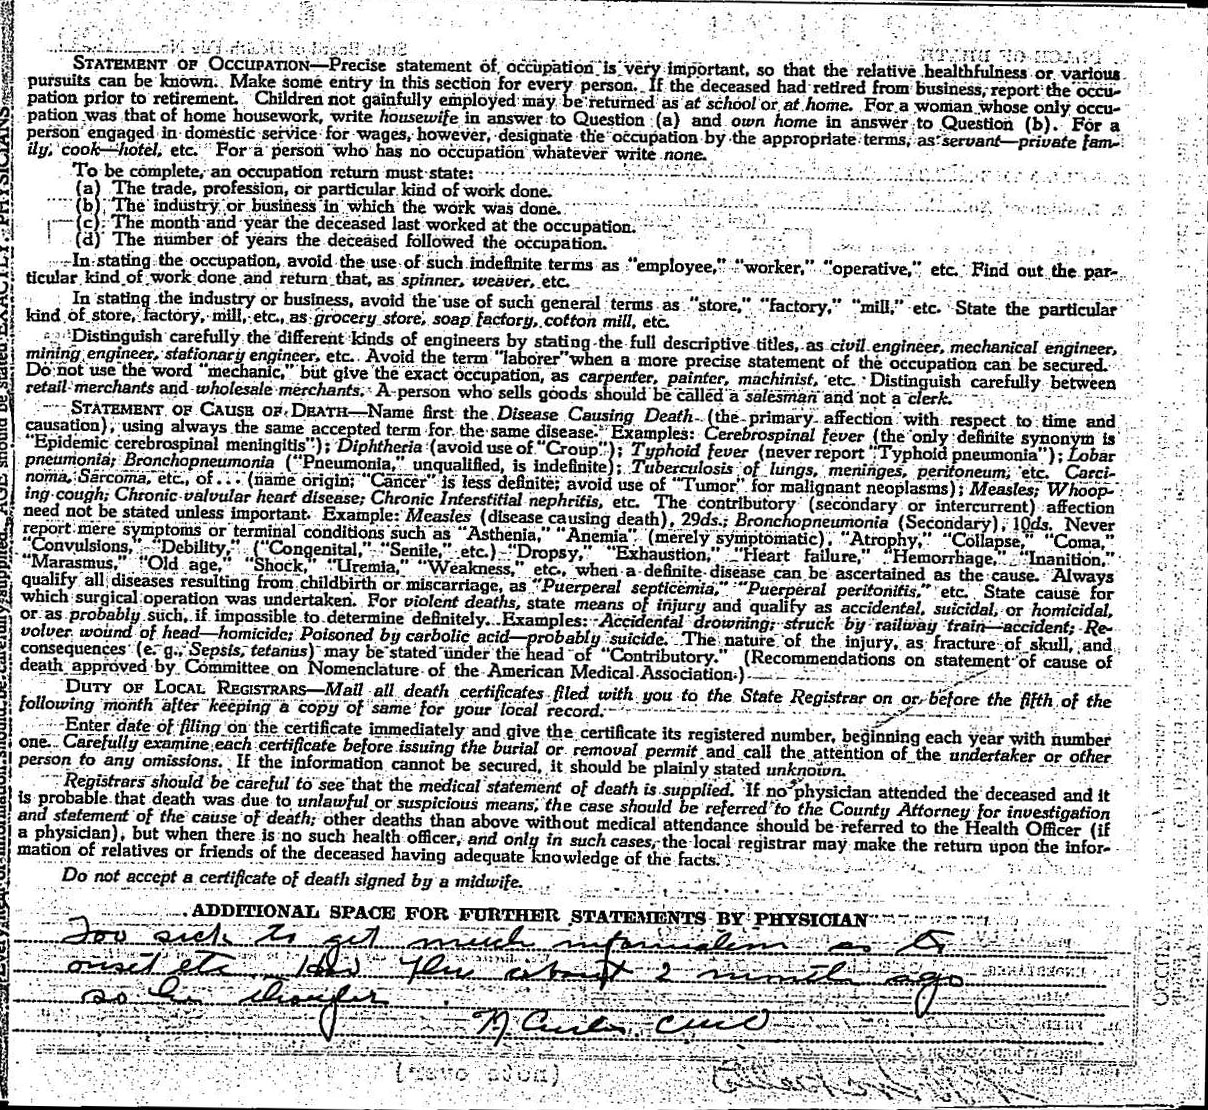 STATEMENT OF OCCUPATION—Precise statement of occupation is very important, so that the relative healthfulness or various
pursuits can be known. Make some entry in this section for every person. If the deceased had retired from business, report the occu-
pation prior to retirement. Children not gainfully employed may be returned as at school or at home. For a woman whose only occu-
pation was that of home housework, write housewife in answer to Question (a) and own home in answer to Question (b). For a
person engaged in domestic service for wages, however, designate the occupation by the appropriate terms, as servant—private fam-
ily, cook—hotel, etc. For a person who has no occupation whatever write none.
To be complete, an occupation return must state:
(a) The trade, profession, or particular kind of work done.
(b) The industry or business in which the work was done.
(c) The month and year the deceased last worked at the occupation.
(d) The number of years the deceased followed the occupation.
In stating the occupation, avoid the use of such indefinite terms as "employee," "worker," "operative," etc. Find out the par-
ticular kind of work done and return that, as spinner, weaver, etc.
In stating the industry or business, avoid the use of such general terms as "store," "factory," "mill," etc. State the particular
kind of store, factory, mill, etc., as grocery store, soap factory, cotton mill, etc.
Distinguish carefully the different kinds of engineers by stating the full descriptive titles, as civil engineer, mechanical engineer,
mining engineer, stationary engineer, etc. Avoid the term "laborer" when a more precise statement of the occupation can be secured.
Do not use the word "mechanic," but give the exact occupation, as carpenter, painter, machinist, etc. Distinguish carefully between
retail merchants and wholesale merchants. A person who sells goods should be called a salesman and not a clerk.
STATEMENT OF CAUSE OF DEATH—Name first the Disease Causing Death (the primary affection with respect to time and
causation), using always the same accepted term for the same disease. Examples: Cerebrospinal fever (the only definite synonym is
"Epidemic cerebrospinal meningitis"); Diphtheria (avoid use of "Croup"); Typhoid fever (never report "Typhoid pneumonia"); Lobar
pneumonia; Bronchopneumonia ("Pneumonia," unqualified, is indefinite); Tuberculosis of lungs, meninges, peritoneum, etc. Carci-
noma, Sarcoma, etc., of . . . (name origin; "Cancer" is less definite; avoid use of "Tumor" for malignant neoplasms); Measles; Whoop-
ing cough; Chronic valvular heart disease; Chronic Interstitial nephritis, etc. The contributory (secondary or intercurrent) affection
need not be stated unless important. Example: Measles (disease causing death), 29ds.; Bronchopneumonia (Secondary), 10ds. Never
report mere symptoms or terminal conditions such as "Asthenia," "Anemia" (merely symptomatic), "Atrophy," "Collapse," "Coma,"
"Convulsions," "Debility," ("Congenital," "Senile," etc.) "Dropsy," "Exhaustion," "Heart failure," "Hemorrhage," "Inanition,"
"Marasmus," "Old age," "Shock," "Uremia," "Weakness," etc., when a definite disease can be ascertained as the cause. Always
qualify all diseases resulting from childbirth or miscarriage, as "Puerperal septicemia," "Puerperal peritonitis," etc. State cause for
which surgical operation was undertaken. For violent deaths, state means of injury and qualify as accidental, suicidal, or homicidal,
or as probably such, if impossible to determine definitely. Examples: Accidental drowning; struck by railway train—accident; Re-
volver wound of head—homicide; Poisoned by carbolic acid—probably suicide. The nature of the injury, as fracture of skull, and
consequences (e. g., Sepsis, tetanus) may be stated under the head of "Contributory." (Recommendations on statement of cause of
death approved by Committee on Nomenclature of the American Medical Association.)
DUTY OF LOCAL REGISTRARS—Mail all death certificates filed with you to the State Registrar on or before the fifth of the
following month after keeping a copy of same for your local record.
Enter date of filing on the certificate immediately and give the certificate its registered number, beginning each year with number
one. Carefully examine each certificate before issuing the burial or removal permit and call the attention of the undertaker or other
person to any omissions. If the information cannot be secured, it should be plainly stated unknown.
Registrars should be careful to see that the medical statement of death is supplied. If no physician attended the deceased and it
is probable that death was due to unlawful or suspicious means, the case should be referred to the County Attorney for investigation
and statement of the cause of death; other deaths than above without medical attendance should be referred to the Health Officer (if
a physician), but when there is no such health officer, and only in such cases, the local registrar may make the return upon the infor-
mation of relatives or friends of the deceased having adequate knowledge of the facts.
Do not accept a certificate of death signed by a midwife.
ADDITIONAL SPACE FOR FURTHER STATEMENTS BY PHYSICIAN
Too sick to get much information as to
onset etc Had Flu about 2 month ago
so he thought